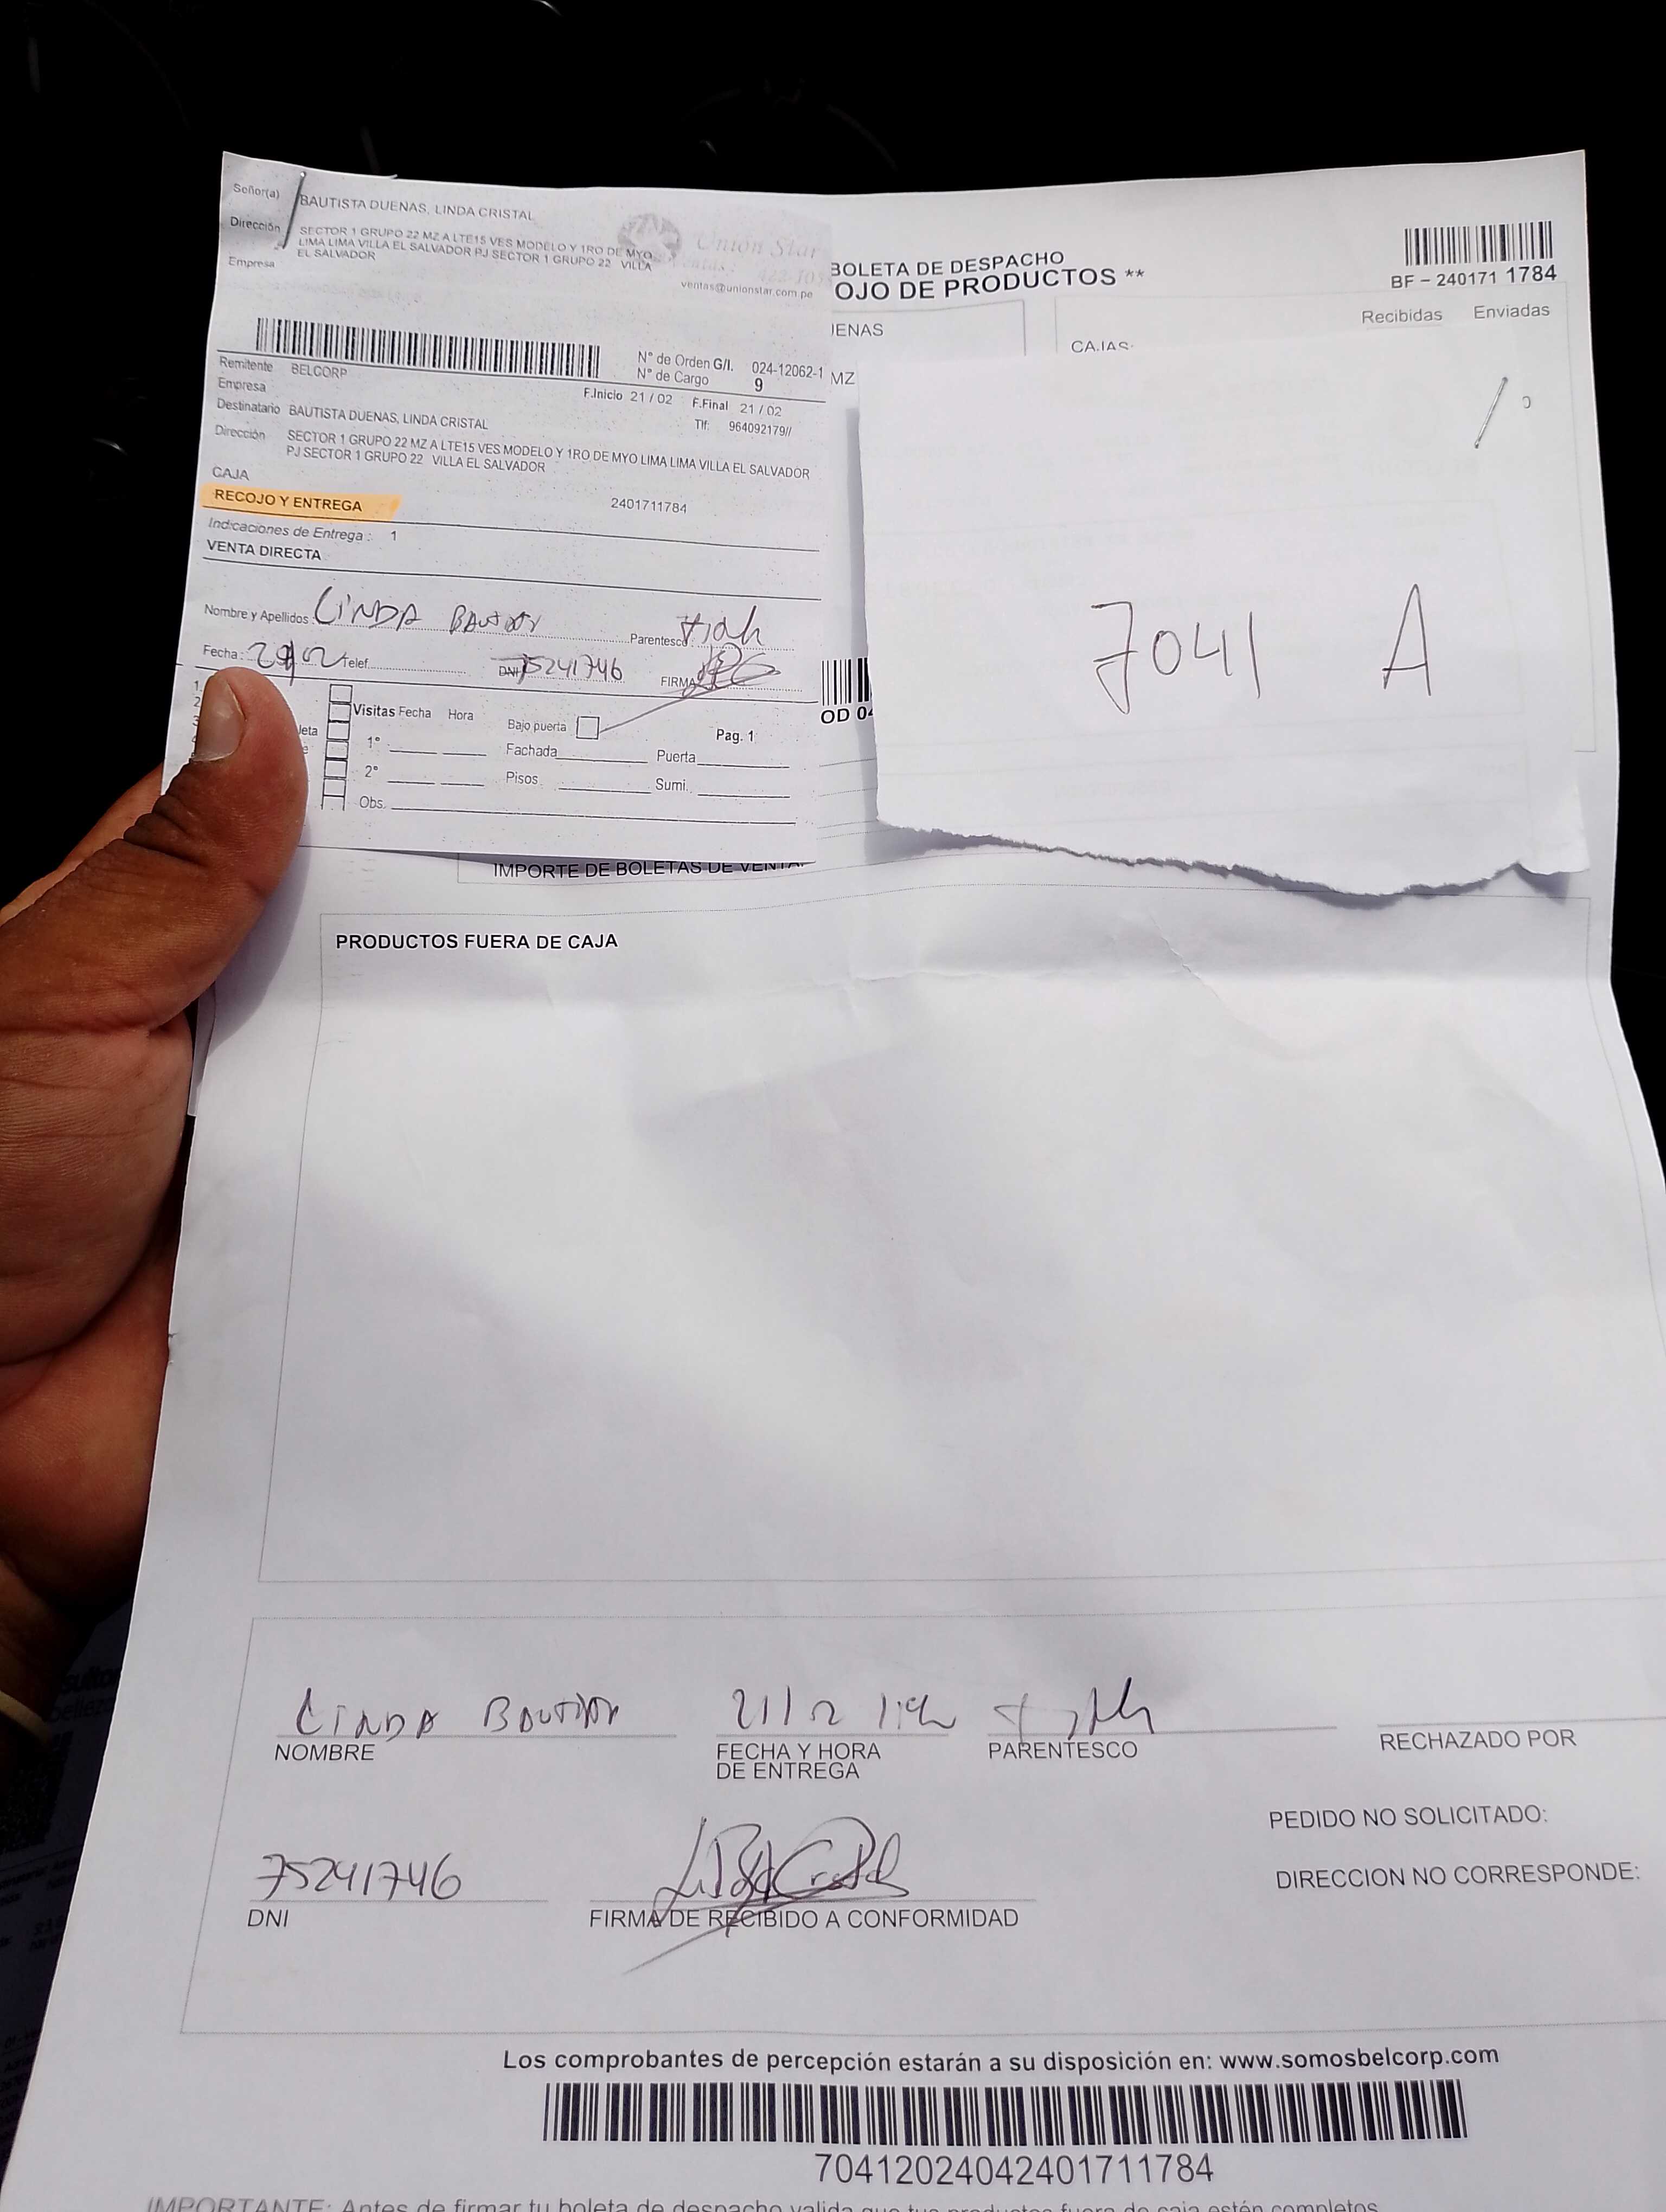 Señor(a) BAUTISTA DUENAS, LINDA CRISTAL
Dirección SECTOR 1 GRUPO 22 MZ A LTE15 VES MODELO Y 1RO DE MYO
LIMA LIMA VILLA EL SALVADOR PJ SECTOR 1 GRUPO 22 VILLA
EL SALVADOR
Empresa
Unión Star
ventas@unionstar.com.pe
N° de Orden G/I. 024-12062-1
N° de Cargo 9
Remitente BELCORP
Empresa
F.Inicio 21 / 02 F.Final 21 / 02
Destinatario BAUTISTA DUENAS, LINDA CRISTAL
Tlf: 964092179//
Dirección SECTOR 1 GRUPO 22 MZ A LTE15 VES MODELO Y 1RO DE MYO LIMA LIMA VILLA EL SALVADOR
PJ SECTOR 1 GRUPO 22 VILLA EL SALVADOR
CAJA
RECOJO Y ENTREGA 2401711784
Indicaciones de Entrega : 1
VENTA DIRECTA
Nombre y Apellidos: LINDA Parentesco
Fecha: Telef. DNI 75241746 FIRMA
1.
2
3
Visitas Fecha Hora
Bajo puerta
Pag. 1
1° Fachada Puerta
2° Pisos Sumi.
Obs.
BOLETA DE DESPACHO
OJO DE PRODUCTOS **
BF - 240171 1784
Recibidas Enviadas
ENAS
CAJAS:
MZ
0
7041 A
OD 04
IMPORTE DE BOLETAS DE VENTA
PRODUCTOS FUERA DE CAJA
LINDA
NOMBRE
FECHA Y HORA
DE ENTREGA
PARENTESCO
RECHAZADO POR
PEDIDO NO SOLICITADO:
DIRECCION NO CORRESPONDE:
75241746
DNI
FIRMA DE RECIBIDO A CONFORMIDAD
Los comprobantes de percepción estarán a su disposición en: www.somosbelcorp.com
70412024042401711784
IMPORTANTE: Antes de firmar tu boleta de despacho valida que tus productos fuera de caja estén completos